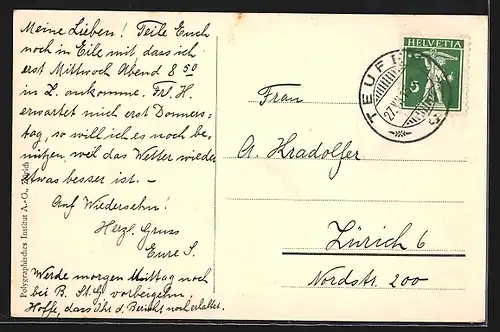 Meine Lieben! Teile Euch
noch in Eile mit, dass ich
erst Mittwoch Abend 8 50
in Z. ankomme. Frl. H.
erwartet mich erst Donners-
tag, so will ich es noch be-
nützen, weil das Wetter wieder
etwas besser ist. –
Auf Wiedersehn!
Herzl. Gruss
Eure S.
Werde morgen Mittag noch
bei B. St. G vorbeigehn.
Hoffe, dass Ihr d. Bericht noch erhaltet.
Polygraphisches Institut A.-G., Zürich
HELVETIA
5
TEUFEN
27.VII
Frau
A. Kradolfer
Zürich 6
Nordstr. 200